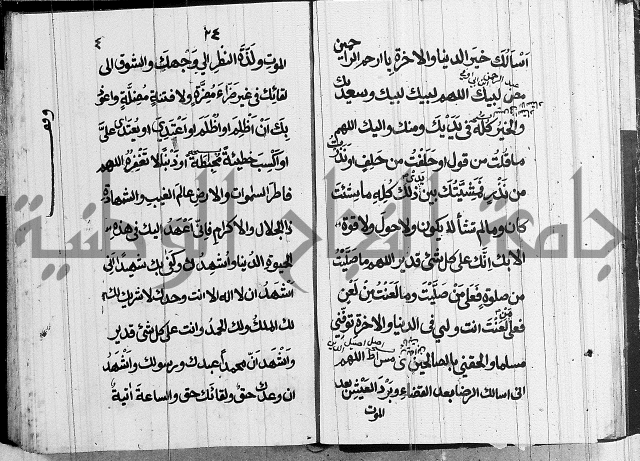 اسألك خير الدنيا والاخرة يا ارحم الراحمين
لبيك اللهم لبيك لبيك وسعديك
والخير كله في يديك ومنك واليك اللهم
ما قلت من قول او حلفت من حلف او نذرت
من نذر فمشيتك بين يدي ذلك كله ما شئت
كان وما لم تشأ لا يكون ولا حول ولا قوة
الا بك انك على كل شئ قدير اللهم ما صليت
من صلوة فعلى من صليت وما لعنت من لعن
فعلى من لعنت انت وليي في الدنيا والاخرة توفني
مسلما والحقني بالصالحين اللهم
اني اسالك الرضا بعد القضاء وبرد العيش بعد
الموت
٢٤
٤
الموت ولذة النظر الى وجهك والشوق الى
لقائك في غير ضراء مضرة ولا فتنة مضلة واعوذ
بك ان اظلم او اظلم او اعتدي او يعتدى علي
او اكسب خطيئة محبطة او ذنبا لا تغفره اللهم
فاطر السموات والارض عالم الغيب والشهادة
ذا الجلال والاكرام فاني اعهد اليك في هذه
الحيوة الدنيا واشهدك وكفى بك شهيدا اني
اشهد ان لا اله الا انت وحدك لا شريك لك
لك الملك ولك الحمد وانت على كل شئ قدير
واشهد ان محمدا عبدك ورسولك واشهد
ان وعدك حق ولقائك حق والساعة اتية
وقف
جامعة النجاح الوطنية